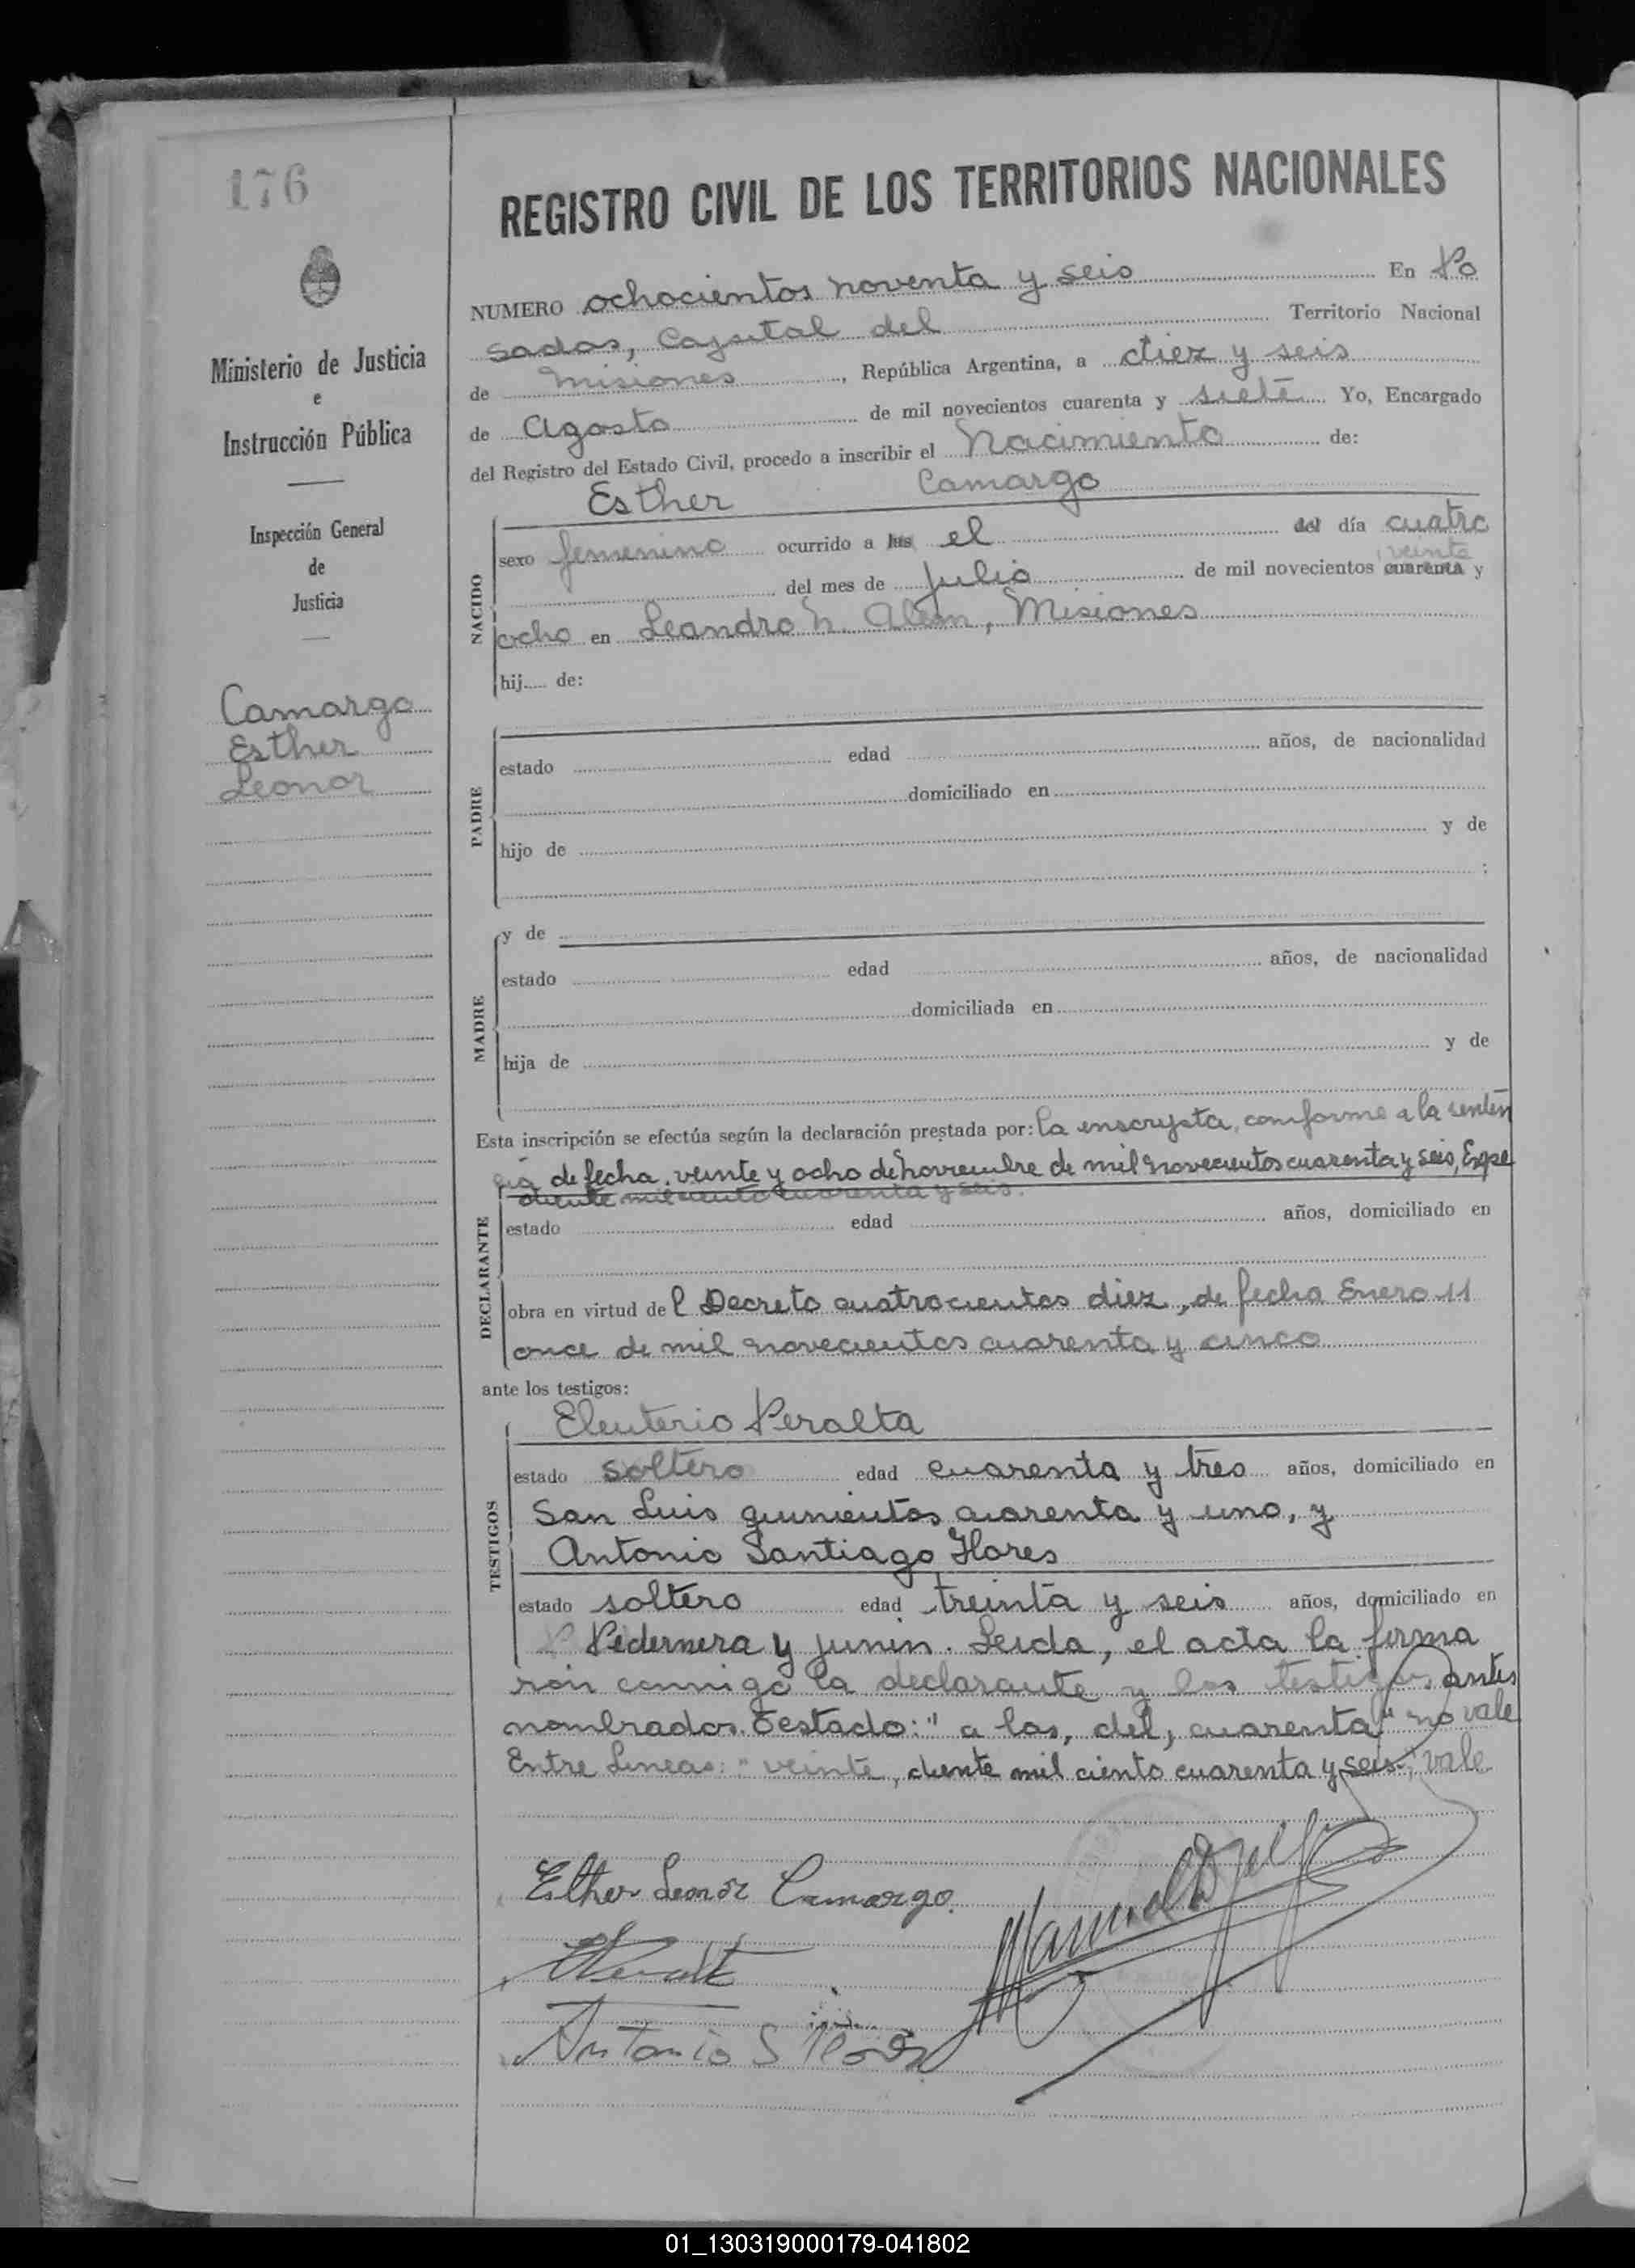 176
Ministerio de Justicia
e
Instrucción Pública
Inspección General
de
Justicia
Camargo
Esther
Leonor
REGISTRO CIVIL DE LOS TERRITORIOS NACIONALES
NUMERO ochocientos noventa y seis En Po
sadas, Capital del Territorio Nacional
de Misiones, República Argentina, a diez y seis
de Agosto de mil novecientos cuarenta y siete Yo, Encargado
del Registro del Estado Civil, procedo a inscribir el Nacimiento de:
Esther Camargo
NACIDO
sexo femenino ocurrido a las el del día cuatro
veinte
del mes de Julio de mil novecientos cuarenta y
ocho en Leandro N. Alem, Misiones
hij..... de:
PADRE
estado edad años, de nacionalidad
domiciliado en
hijo de y de
;
MADRE
y de
estado edad años, de nacionalidad
domiciliada en
hija de y de
Esta inscripción se efectúa según la declaración prestada por: la inscripta, conforme a la senten
cia de fecha veinte y ocho de noviembre de mil novecientos cuarenta y seis, Expe
diente mil ciento cuarenta y seis.
DECLARANTE
estado edad años, domiciliado en
obra en virtud de l Decreto cuatrocientos diez, de fecha Enero 11
once de mil novecientos cuarenta y cinco
ante los testigos:
TESTIGOS
Eleuterio Peralta
estado soltero edad cuarenta y tres años, domiciliado en
San Luis quinientos cuarenta y uno, y
Antonio Santiago Flores
estado soltero edad treinta y seis años, domiciliado en
Pedernera y Junin. Leida, el acta la firma
ron conmigo la declarante y los testigos antes
nombrados. Testado: "a las, del, cuarenta" no vale
Entre Lineas: "veinte, diente mil ciento cuarenta y seis", vale
Esther Leonor Camargo
Antonio S Flores
01_130319000179-041802